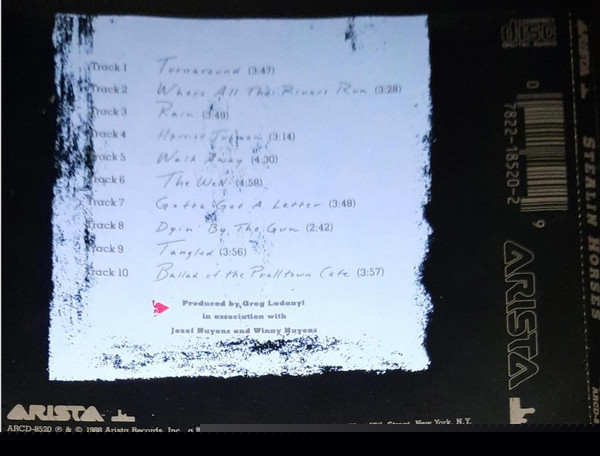 Track 1 Turnaround (3:47)
Track 2 Where All The Rivers Run (3:28)
Track 3 Rain (3:49)
Track 4 Harriet Tubman (3:14)
Track 5 Walk Away (4:30)
Track 6 The Well (4:58)
Track 7 Gotta Get A Letter (3:48)
Track 8 Dyin' By The Gun (2:42)
Track 9 Tangled (3:56)
Track 10 Ballad of the Pralltown Cafe (3:57)
Produced by Greg Ladanyi
in association with
Jozef Nuyens and Winny Nuyens
ARISTA
ARCD-8520 ℗ & © 1988 Arista Records, Inc.
Street, New York, N.Y.
COMPACT
disc
DIGITAL AUDIO
0 7822-18520-2 9
ARISTA
ARISTA
STEALIN HORSES